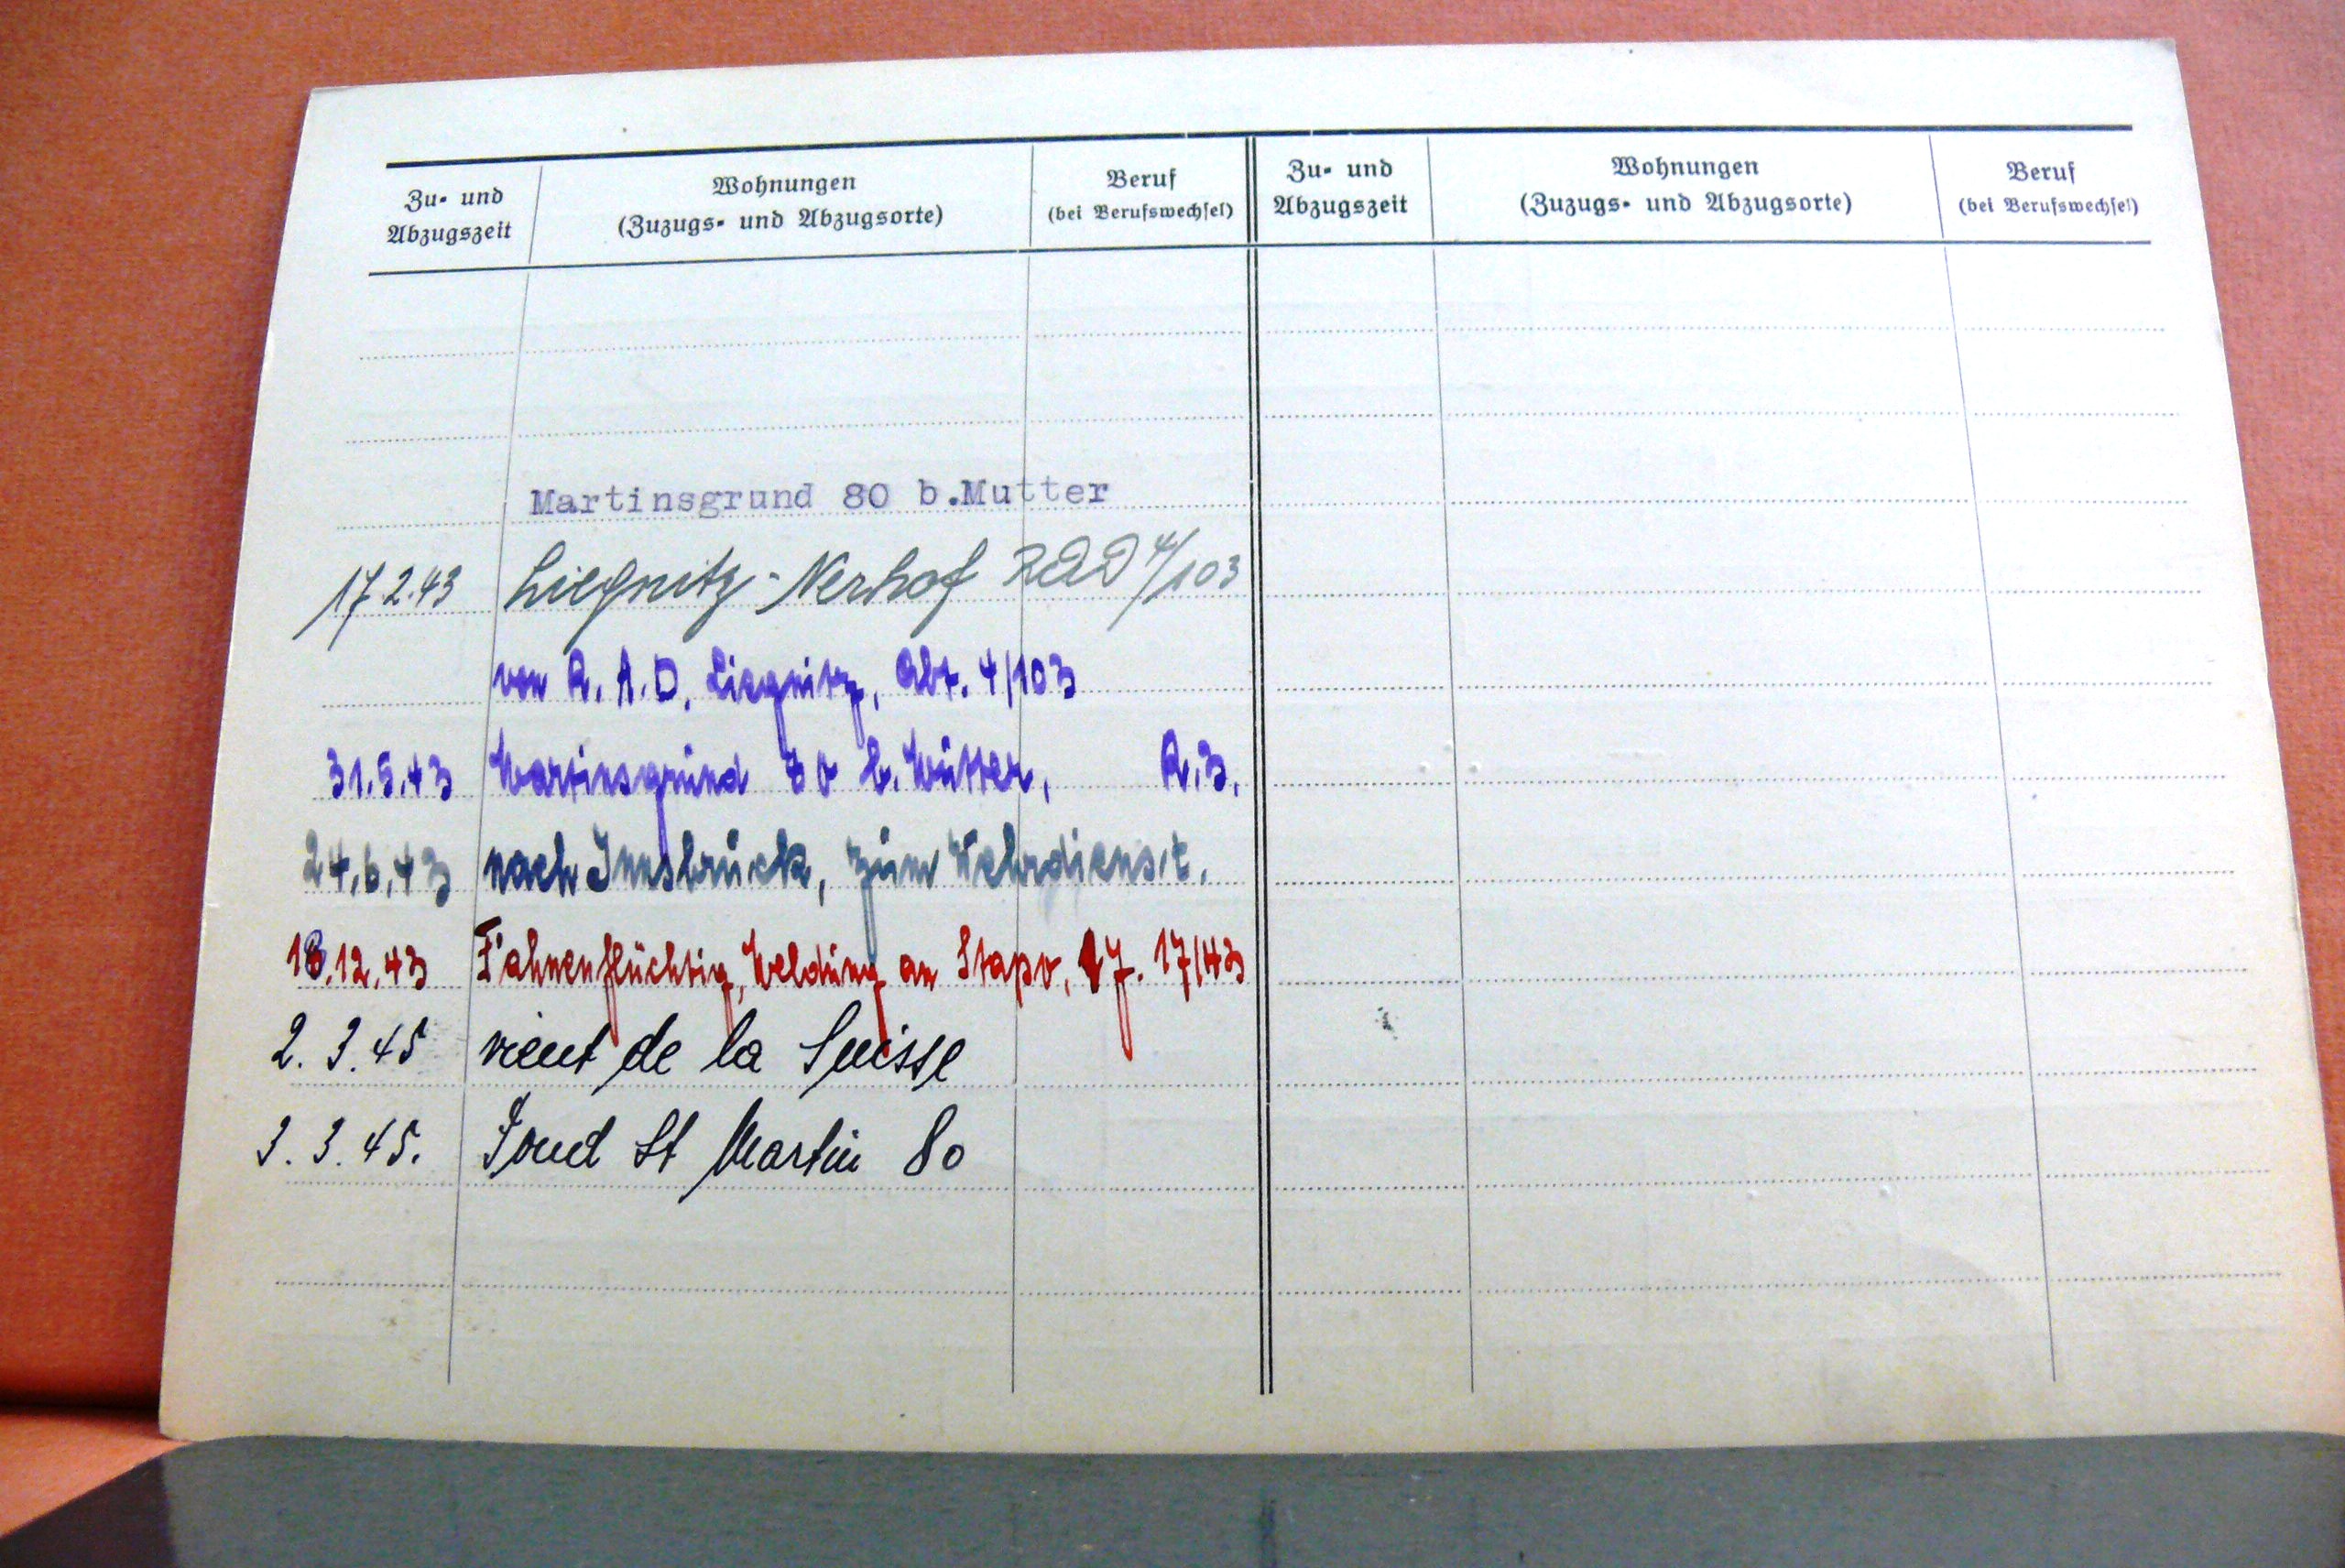 Zu- und Abzugszeit
Wohnungen
(Zuzugs- und Abzugsorte)
Beruf
(bei Berufswechsel)
Zu- und Abzugszeit
Wohnungen
(Zuzugs- und Abzugsorte)
Beruf
(bei Berufswechsel)
Martinsgrund 80 b.Mutter
17.2.43 Liegnitz-Nerhof RAD 4/103
von R.A.D. Liegnitz, Abt. 4/103
31.5.43 Martinsgrund 80 b. Mutter, R.3.
24.6.43 nach Innsbruck, zum Wehrdienst.
18.12.43 Fahnenflüchtig, Meldung an Stapo, 17/43
2. 3. 45 vient de la Suisse
3. 3. 45. Fond St Martin 80